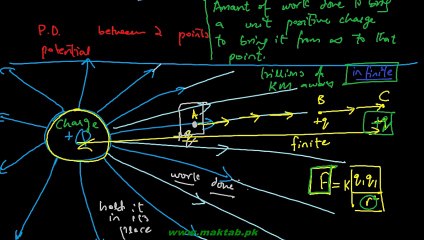 P.D. between 2 points
potential
Amant of work done to bring
a unit positive charge
to bring it from ∞ to that
point.
trillions of
KM away
infinite
A
B
C
charge
+q
+q
finite
work done
F = K q₁q₁
r
hold it
in its
place
www.maktab.pk